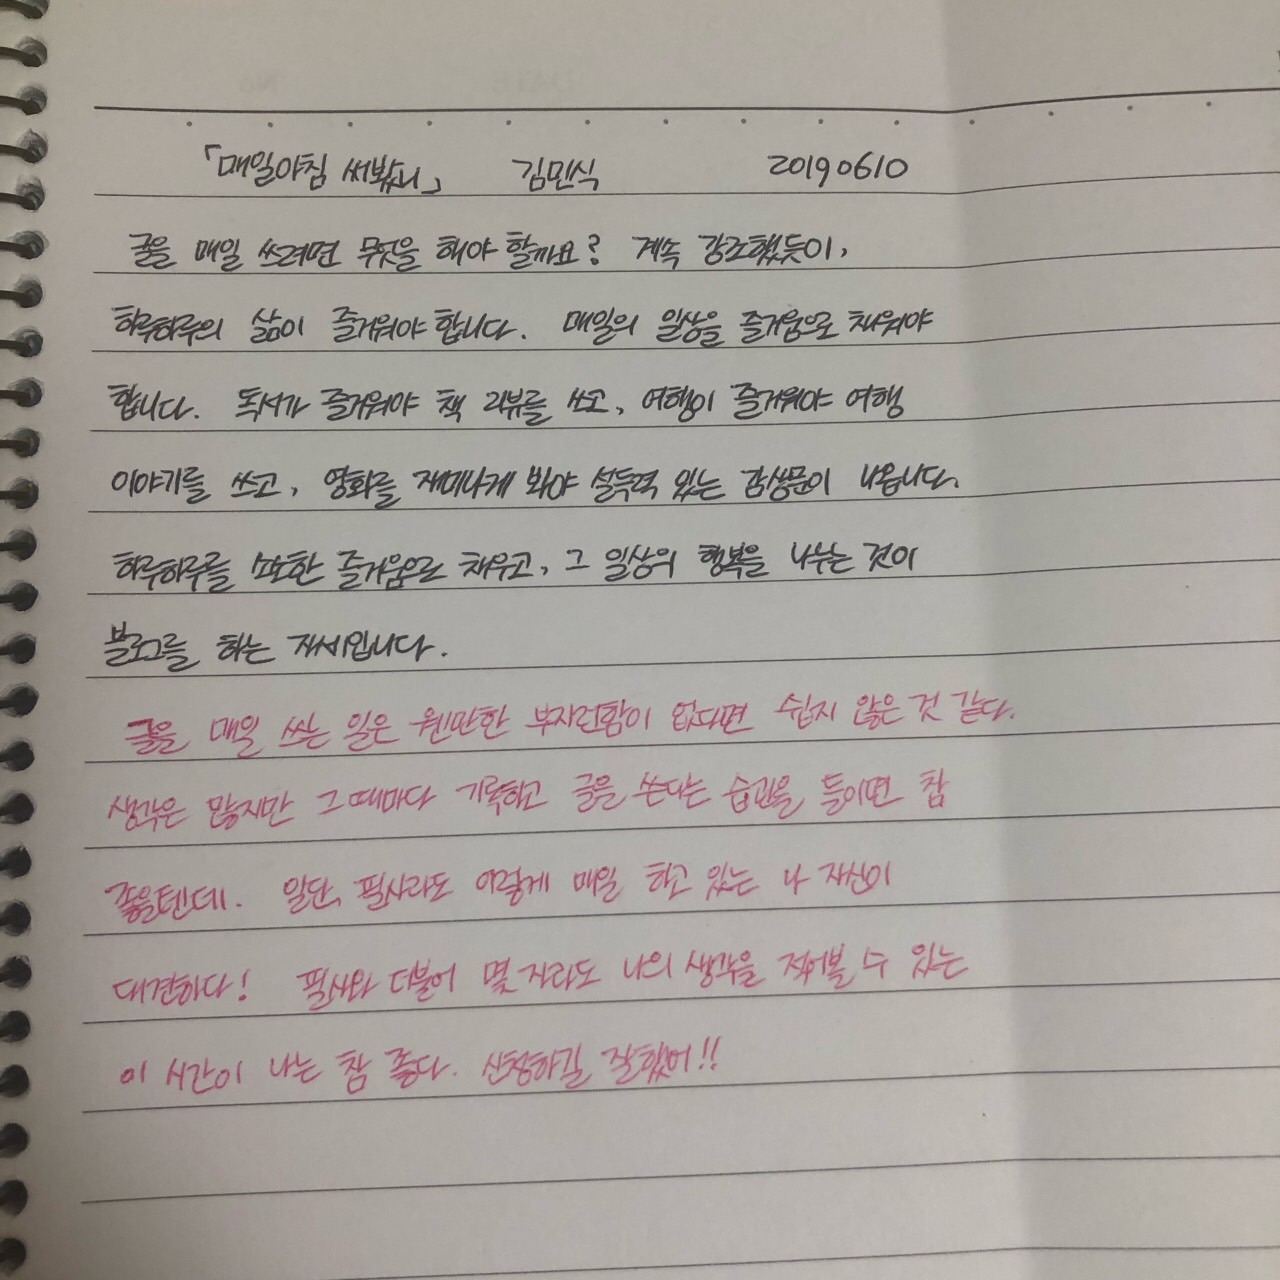 「매일아침 써봤니」 김민식 20190610
글을 매일 쓰려면 무엇을 해야 할까요? 계속 강조했듯이,
하루하루의 삶이 즐거워야 합니다. 매일의 일상을 즐거움으로 채워야
합니다. 독서가 즐거워야 책 리뷰를 쓰고, 여행이 즐거워야 여행
이야기를 쓰고, 영화를 재미나게 봐야 설득력 있는 감상문이 나옵니다.
하루하루를 소소한 즐거움으로 채우고, 그 일상의 행복을 나누는 것이
블로그를 하는 자세입니다.
글을 매일 쓰는 일은 웬만한 부지런함이 없다면 쉽지 않은 것 같다.
생각은 많지만 그때마다 기록하고 글을 쓴다는 습관을 들이면 참
좋을텐데. 일단, 필사라도 이렇게 매일 하고 있는 나 자신이
대견하다! 필사와 더불어 몇 자라도 나의 생각을 적어볼 수 있는
이 시간이 나는 참 좋다. 신청하길 잘했어!!